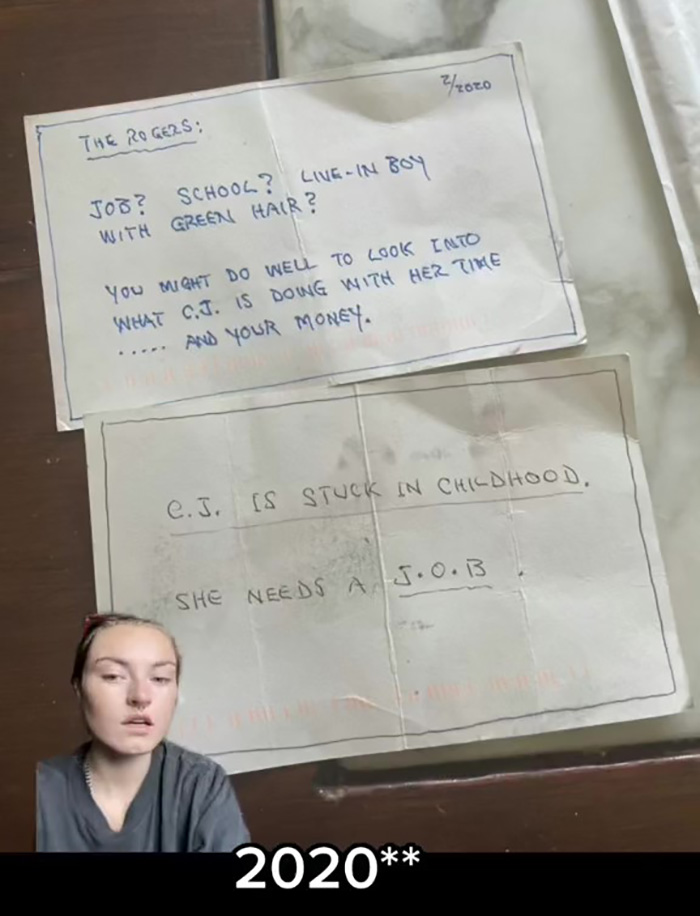 2/2020
THE ROGERS:
JOB? SCHOOL? LIVE-IN BOY
WITH GREEN HAIR?
YOU MIGHT DO WELL TO LOOK INTO
WHAT C.J. IS DOING WITH HER TIME
..... AND YOUR MONEY.
C.J. IS STUCK IN CHILDHOOD.
SHE NEEDS A J.O.B.
2020**